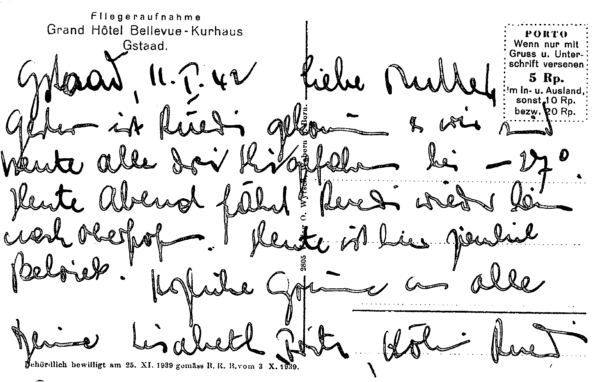 Fliegeraufnahme
Grand Hôtel Bellevue-Kurhaus
Gstaad.
PORTO
Wenn nur mit
Gruss u. Unter-
schrift versehen
5 Rp.
im In- u. Ausland,
sonst 10 Rp.
bezw. 20 Rp.
Gstaad, 11. I. 42 Liebe Mutter,
Gestern ist Ruedi gekommen & wir sind
heute alle drei Skigefahren bei -27°.
Heute Abend fährt Ruedi wieder heim
nach Oberhof. Heute ist hier ziemlich
Betrieb.
Herzliche Grüsse an alle
Lisabeth Fritz, Ruedi
2805
Behördlich bewilligt am 25. XI. 1939 gemäss B. R. B. vom 3 X. 1939.